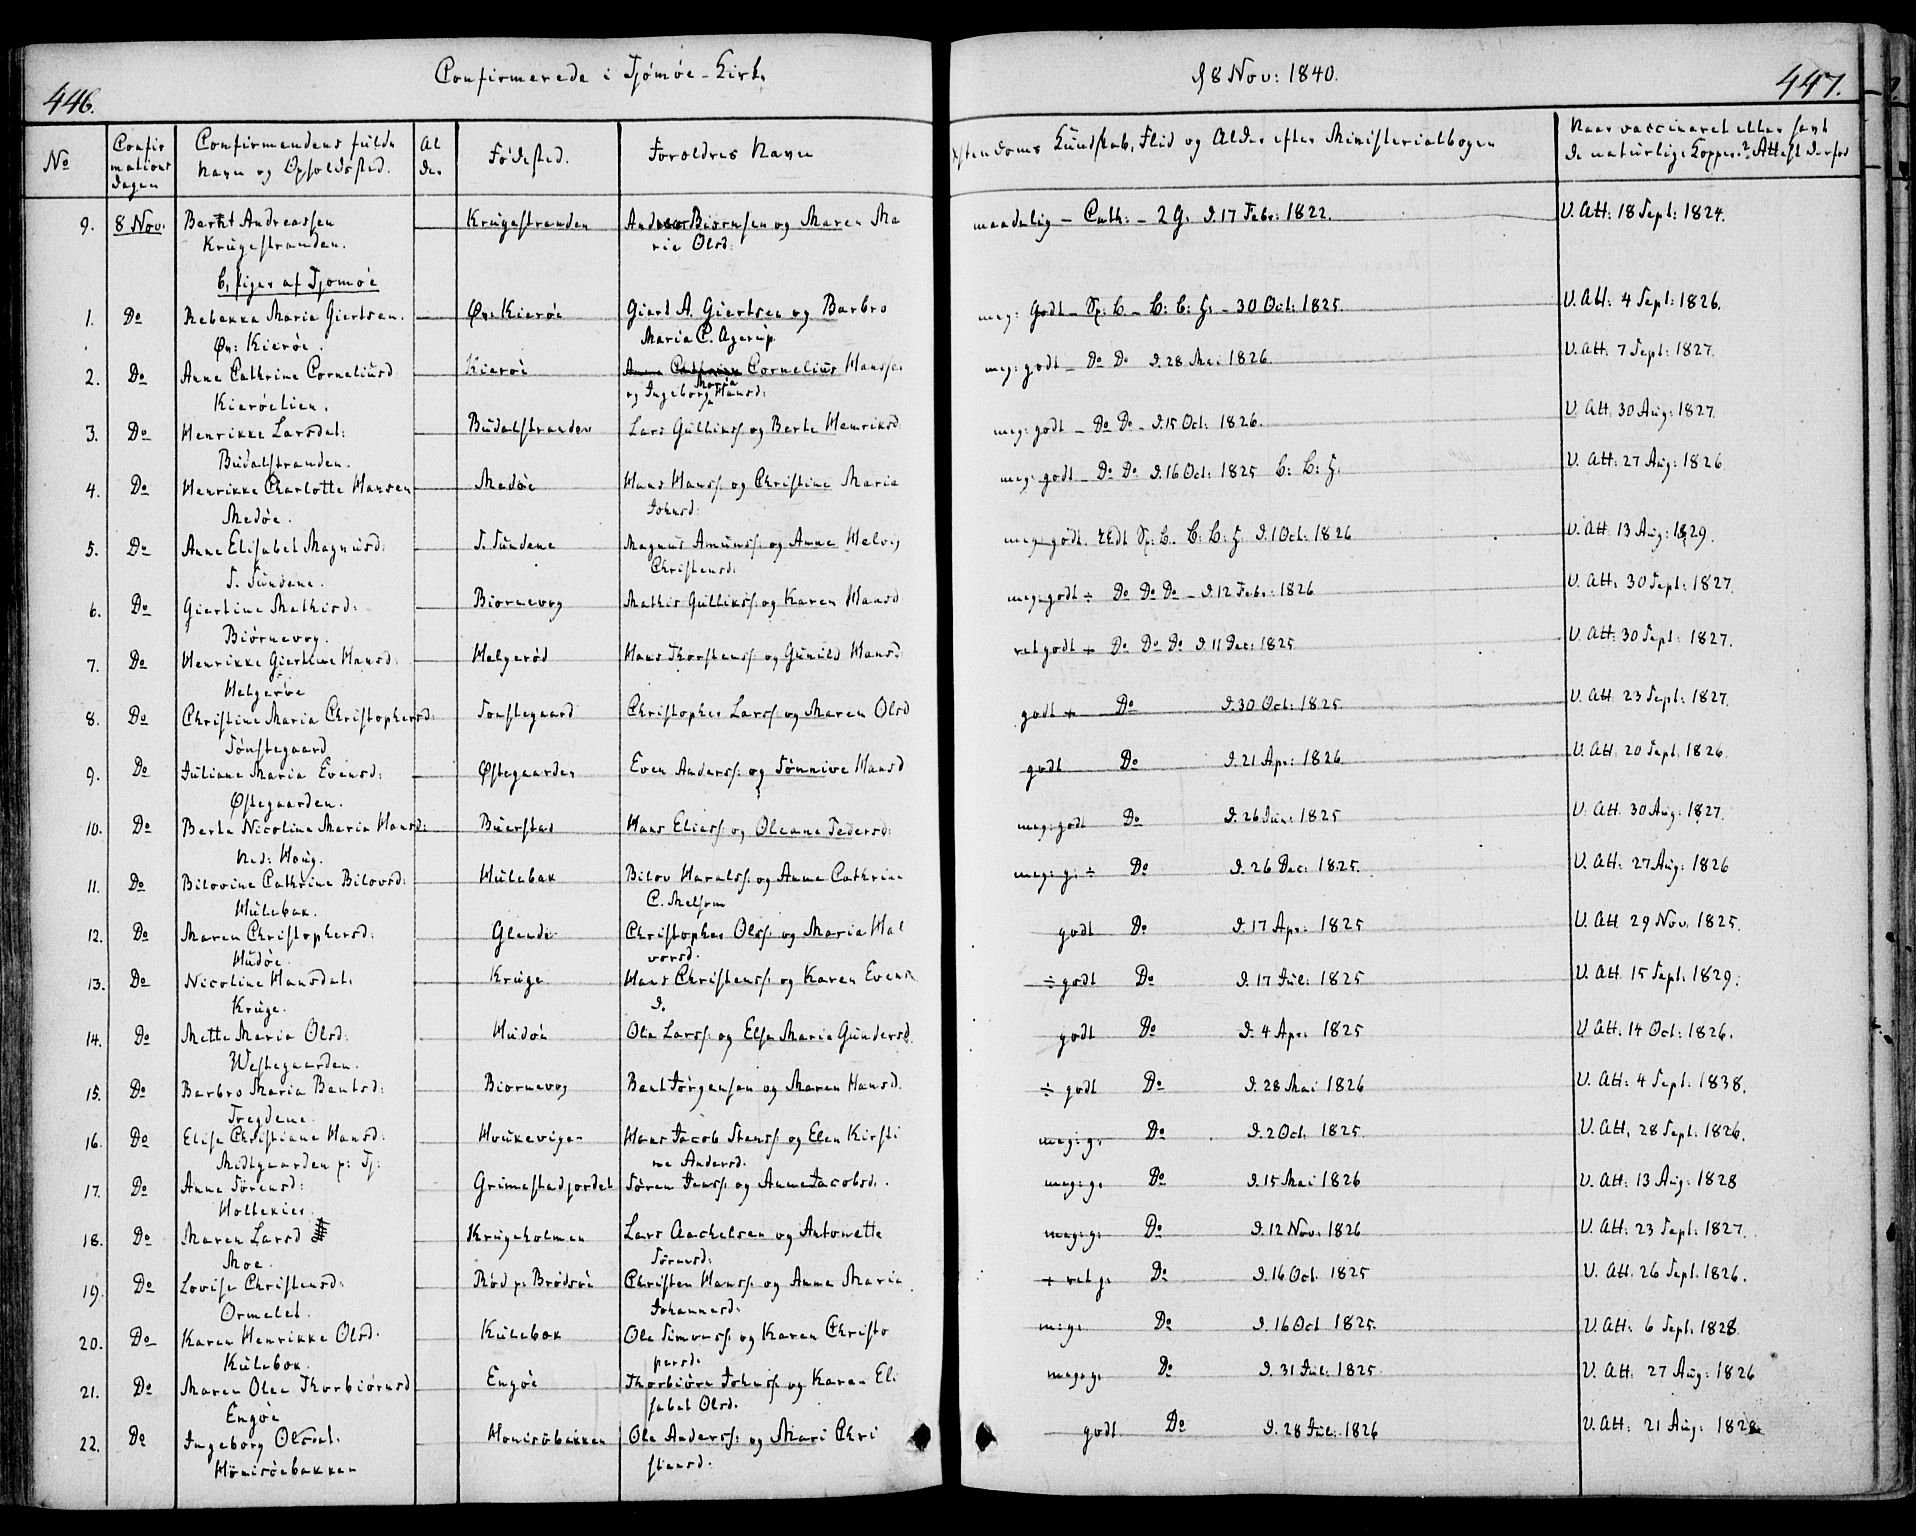 446.
Confirmerede i Tjömöe-Kirk.
d 8 Nov: 1840.
447.
No
Confir
mations
dagen
Confirmandens fulde
Navn og Opholdsted.
Al
de.
Födested.
Foreldres Navn
Christendoms Kundskab, Flid og Alder efter Ministerialbogen
Naar vaccineret eller havt
de naturlige Kopper? Attest derfor
9. 8 Nov. Bernt Andreassen Krugestranden Anders Biörnsen og Maren Ma maadelig - Cath: - 2 G. d. 17 Febr: 1822. V. Att: 18 Sept: 1824.
Krugestranden. rie Olsd:
b, Piger af Tjomöe
1. Do Rebekka Maria Giertsen. Ov: Kieröe Giert A. Giertsen og Barbro meg: godt - Sp: L - L: B: H. - 30 Oct: 1825. V. Att: 4 Sept: 1826.
Ov: Kieröe. Maria C. Agerup.
2. Do Anne Cathrine Corneliusd Kieröe Cornelius Hanssen meg: godt - Do Do d. 28 Mai 1826. V. Att. 7 Sept: 1827.
Kieröelien. og Ingeborg Maria Hansd:
3. Do Henrikke Larsdat: Budalstranden Lars Gulliks: og Berte Henriksd. meg: godt - Do Do - d. 15 Oct: 1826. V. Att. 30 Aug: 1827.
Budalstranden.
4. Do Henrikke Charlotte Hansen Medöe Hans Hans: og Christine Marie meg: godt - Do Do d. 16 Oct: 1825 V. Att: 27 Aug: 1826
Medöe. Johnsd:
5. Do Anne Elisabet Magnusd: S. Sundene Magnus Amunds: og Anne Helvig meg godt. d. 1 Oct: 1826 V. Att. 13 Aug: 1829.
S. Sundene. Christensd:
6. Do Giertine Mathisd: Biornevog Mathis Gulliks: og Karen Hansd meg: godt ÷ Do Do Do - d. 12 Febr: 1826 V. Att: 30 Sept: 1827
Biörnevog.
7. Do Henrikke Giertine Hansd: Helgeröd Hans Thorstens: og Gunild Hansd. ret godt + Do Do Do d. 11 Dec: 1825 V. Att: 30 Sept: 1827.
Helgeröe
8. Do Christine Maria Christophersd: Sonstegaard Christopher Lars: og Maren Olsd godt + Do d. 30 Oct: 1825 V. Att. 23 Sept: 1827.
Sönstegaard
9. Do Juliane Maria Evensd: Östegaarden Even Anders: og Sönnive Hansd godt Do d. 21 Apr: 1826. V. Att. 20 Sept. 1826.
Östegaarden.
10. Do Berte Nicoline Maria Hansd: Buerstad Hans Elias: og Oleane Pedersd: meg: godt Do d. 26 Jun: 1825 V. Att. 30 Aug: 1827.
Ned: Houg.
11. Do Bilovine Cathrine Bilovsd: Hulebak Bilov Haralds: og Anne Cathrine meg: g: ÷ Do d. 26 Dec: 1825. V. Att: 27 Aug: 1826
Hulebak. C. Melsom
12. Do Maren Christophersd: Glende Christopher Ols: og Maria Hal godt Do d. 17 Apr: 1825 V. Att. 29 Nov. 1825.
Hudöe. vorsd.
13. Do Nicoline Hansdat. Kruge Hans Christens: og Karen Evens ÷ godt Do d. 17 Jul: 1825 V. Att. 15 Sept. 1829.
Kruge. d.
14. Do Mette Maria Olsd: Hudöe Ole Lars: og Else Marie Gundersd. godt Do d. 4 Apr. 1825 V. Att. 14 Oct: 1826.
Westegaarden.
15. Do Barbro Maria Bentsd: Biornevog Bent Jörgensen og Maren Hansd. ÷ godt Do d. 28 Mai 1826 V. Att: 4 Sept. 1838.
Tregdene.
16. Do Elise Christiane Hansd: Houkevigen Hans Jacob Stens: og Elen Kirsti meg: g. Do d. 2 Oct. 1825. V. Att. 28 Sept. 1826.
Midtgaarden p: Tj: ne Andersd.
17. Do Anne Sörensd: Grimestadjordet Sören Jens: og Anne Jacobsd. meg: g. Do d. 15 Mai 1826 V. Att: 13 Aug: 1828
Holtekier.
18. Do Maren Larsd Krugeholmen Lars Aachelsen og Antonette meg: g: Do d. 12 Nov. 1826 V. Att: 23 Sept: 1827.
Moe. Sörensd:
19. Do Lovise Christensd: Röd p: Brödsöe Christen Hans: og Anne Maria ÷ ret g. Do d. 16 Oct. 1825 V. Att. 26 Sept. 1826.
Ormelet. Johannesd:
20. Do Karen Henrikke Olsd. Kulebok Ole Simons: og Karen Christo m: g: Do d. 16 Oct 1825. V. Att: 6 Sept. 1828.
Kulebok. persd.
21. Do Maren Olea Thorbiörnsd Engöe Thorbiörn Johns: og Karen Eli meg: g: Do d. 31 Jul: 1825. V. Att: 27 Aug: 1826
Engöe sabet Olsd.
22. Do Ingeborg Olsdat. Honisöebakken Ole Anders: og Mari Chri godt Do d. 28 Jul: 1826 V. Att: 21 Aug: 1828
Hönisöebakken stensd.